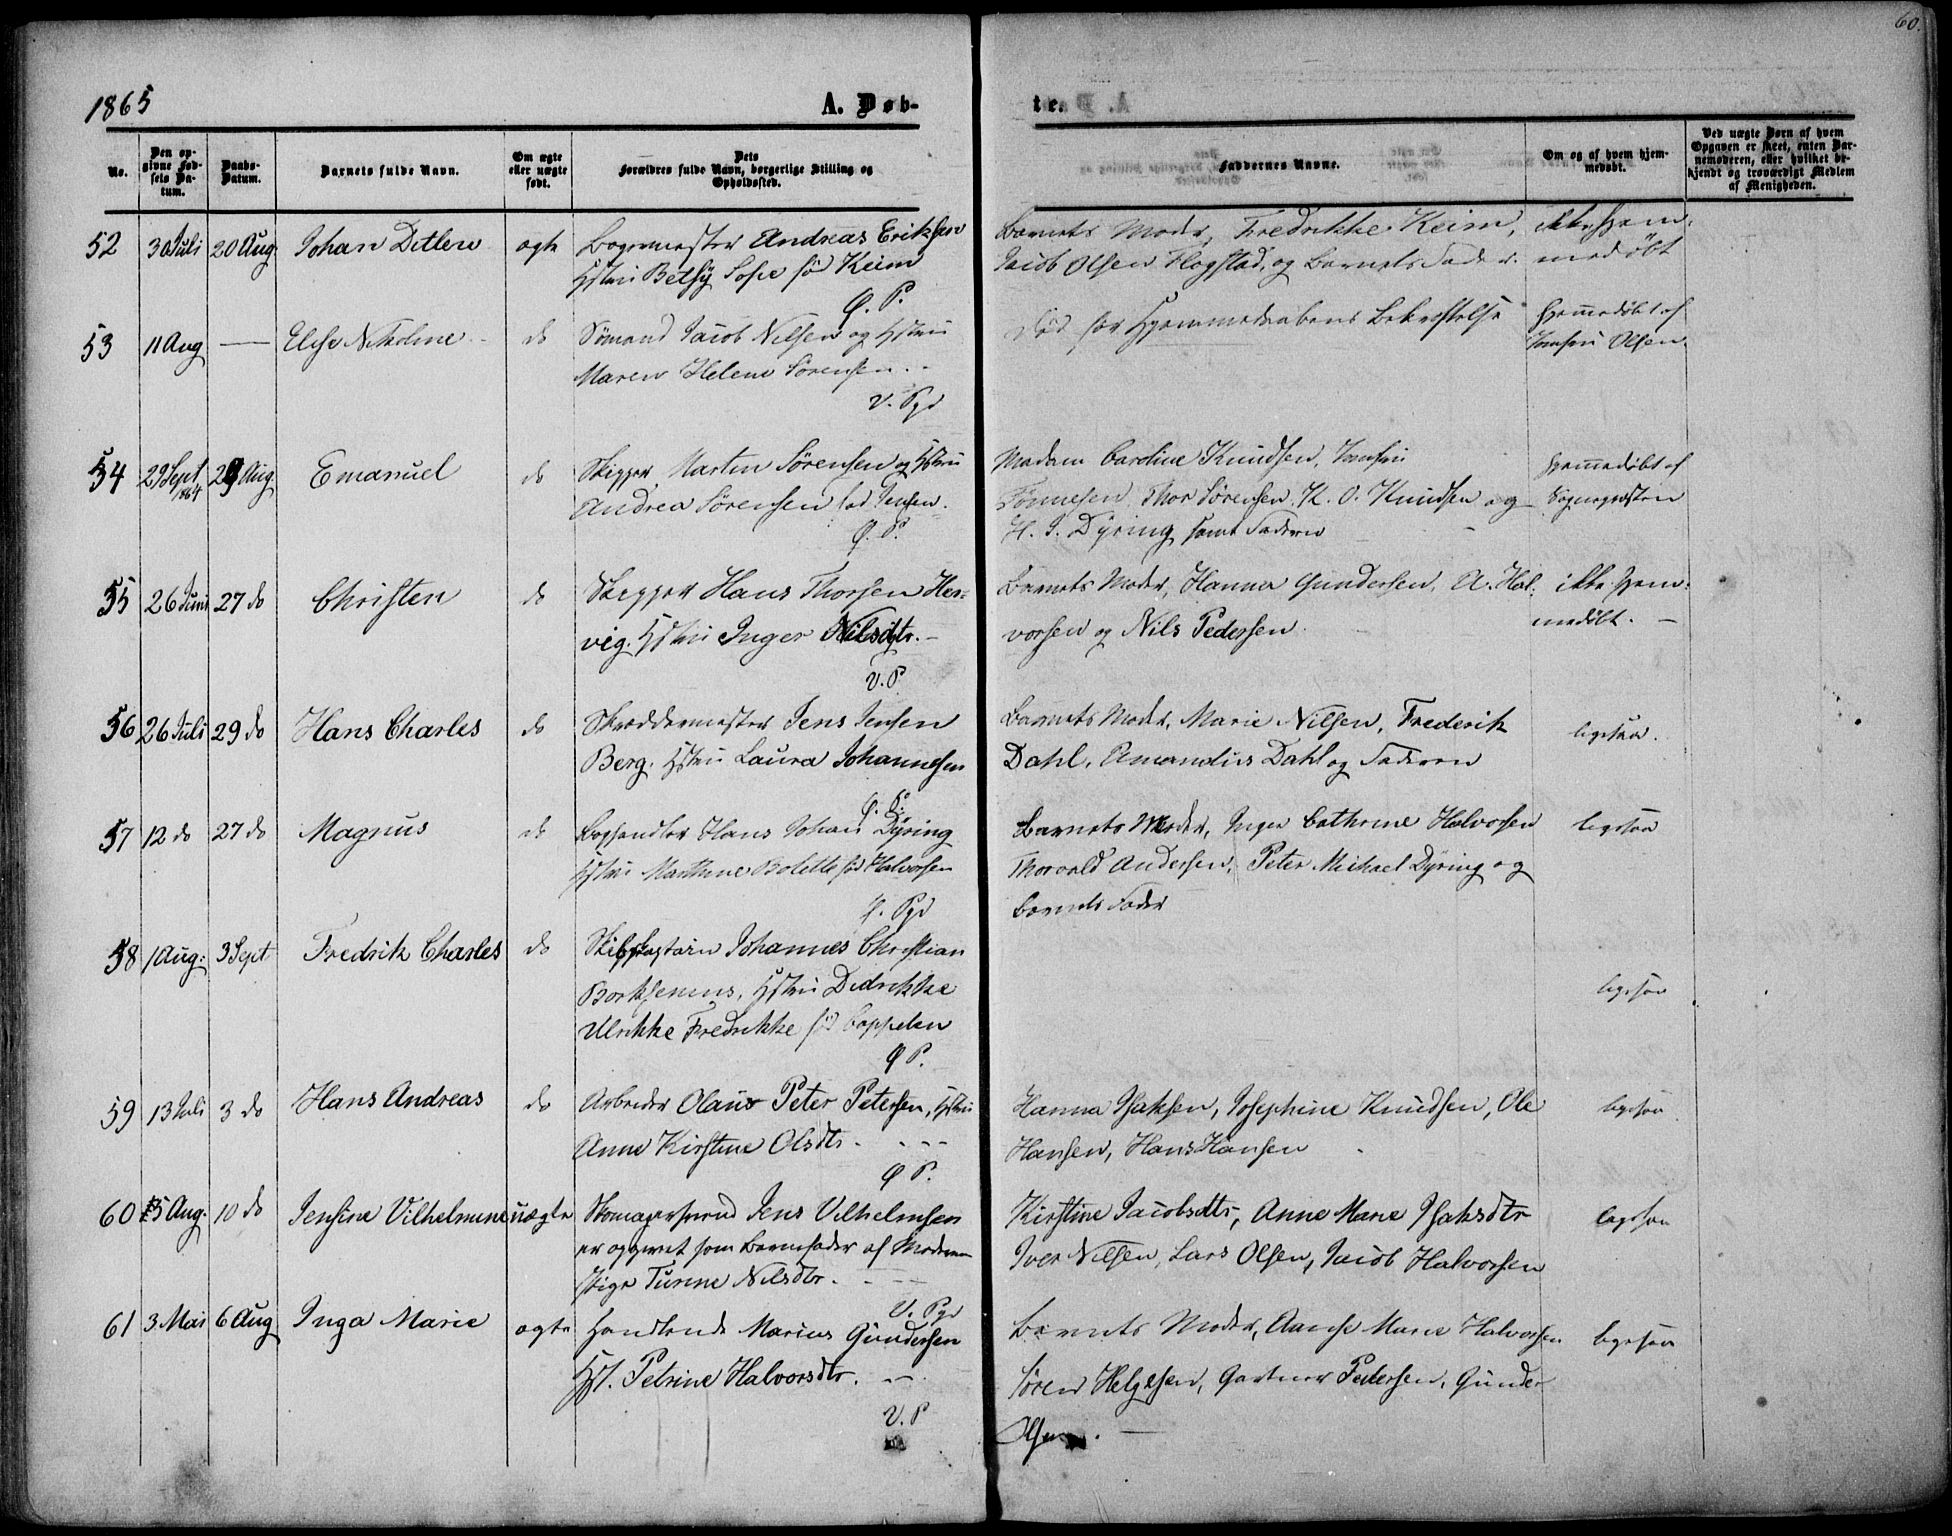 60.
1865
A. Døb-
te.
No.
Den opgivne Fødsels Datum.
Daabs-Datum.
Barnets fulde Navn.
Om ægte eller uægte født.
Dets Forældres fulde Navn, borgerlige Stilling og Opholdssted.
Faddernes Navne.
Om og af hvem hjemmedøbt.
Ved uægte Børn af hvem Opgaven er skeet, enten Barnemoderen, eller hvilket bekjendt og troværdigt Medlem af Menigheden.
52 30 Juli 20 Aug Johan Ditlev ægte Andreas Eriksen
Hstru Betsy Sofie fød Keim
Ø. P.
Barnets Moder, Fredrikke Keim,
Jacob Olsen Flogstad, og Barnets Fader.
ikke hjem-
medøbt
53 11 Aug — Elise Nikoline do Sømand Jacob Nilsen og Hstru
Maren Helene Sørensen
V. Pgd
Død før Hjemmedaabens Bekræftelse
hjemmedøbt af
Jomfru Olsen.
54 29 Sept 1864 29 Aug. Emanuel do Skipper Martin Sørensen og Hstru
Andrea Sørensen fød Jensen.
Ø. P.
Madam Caroline Knudsen, Jomfru
Tønnesen, Thor Sørensen, K. O. Knudsen og
H. J. Dyring samt Faderen
hjemmedøbt af
Sognepræsten
55 26 Juni 27 do Christen do Skipper Hans Thorsen Her-
vig. Hstru Inger Nilsdtr. —
V. P
Barnets Moder, Hanna Gundersen, A. Hal-
vorsen og Nils Pedersen
ikke hjem-
medøbt. —
56 26 Juli 29 do Hans Charles do Skræddermester Jens Jensen
Berg. Hstru Laura Johannesen
Ø. P.
Barnets Moder, Marie Nilsen, Frederik
Dahl, Amandus Dahl og Faderen
ligesaa.
57 12 do 27 do Magnus do Boghandler Hans Johan Dyring
Hstru Marthine Bolette fød Halvorsen
Ø. Pgd
Barnets Moder, Inger Cathrine Halvorsen
Thorvald Andersen, Peter Michael Dyring og
Barnets Fader
ligesaa
58 1 Aug: 3 Sept Fredrik Charles do Skibskaptain Johannes Christian
Borksenius, Hstru Didrikke
Ulrikke Fredrikke fød Cappelen
Ø P.
ligesaa
59 13 Juli 3 do Hans Andreas do Arbeider Olaus Peter Petersen, Hstru
Anne Kirstine Olsdtr.
Ø P.
Hanna Isaksen, Josephine Knudsen, Ole
Hansen, Hans Hansen
ligesaa
60 15 Aug. 10 do Jensine Vilhelmine uægte Skomagersvend Jens Vilhelmsen
er opgivet som Barnefader af Moderen
Pige Turine Nilsdtr.
V. Pgd
Kirstine Jacobsdtr, Anne Marie Isaksdtr
Iver Nilsen, Lars Olsen, Jacob Halvorsen
ligesaa
61 3 Mai 6 Aug Inga Marie ægte Handlende Marius Gundersen
Hst. Petrine Halvorsdtr.
V. P
Barnets Moder, Marie Halvorsen
Søren Helgesen, Gartner Pedersen, Gunder
Olsen.
ligesaa